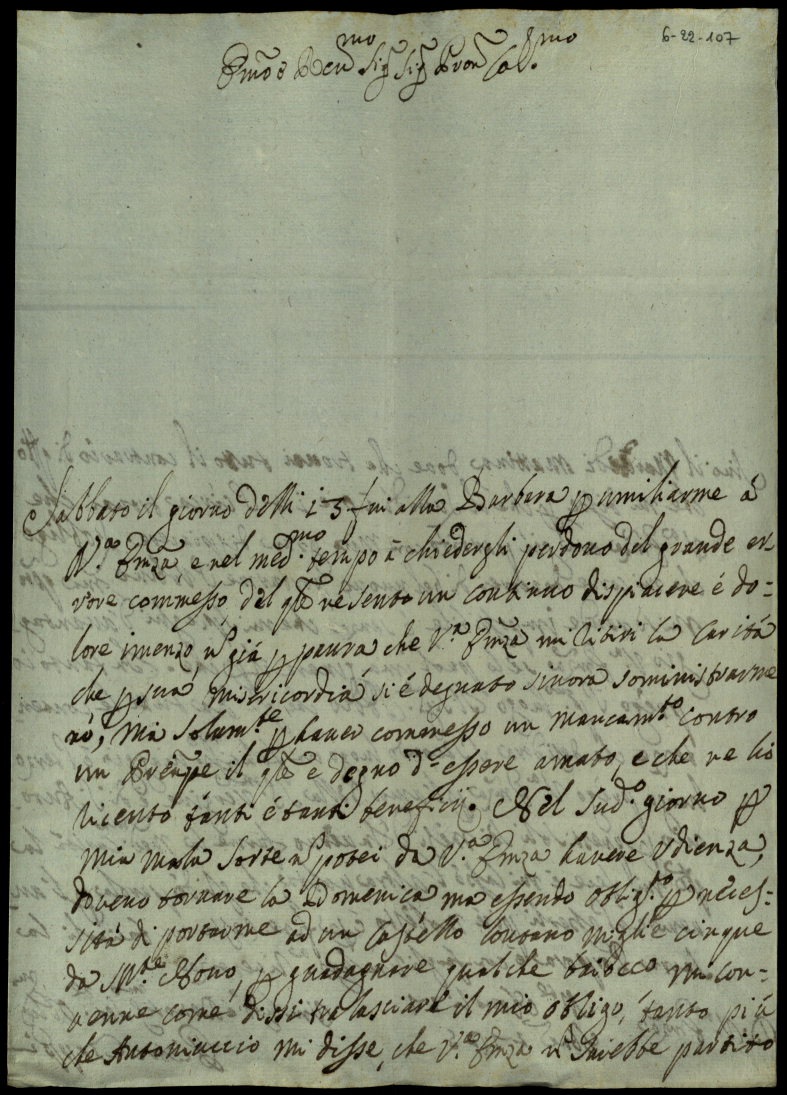 6-22-107
Em̃o e Reu.mo Sig.r Sig.r Pron Col.mo
Sabbato il giorno delli 13 fui alla Barbara p umiliarme á
V.ra Em̃za, e nel med.mo tempo á chiedergli perdono del grande er-
rore commesso, del q̃le ne sento un continuo dispiacere é do-
lore imenzo, ñ giá p paura che V.ra Em̃za mi ritiri la caritá
che p sua misericordia si é degnato sinora somministrarme
nó, má solam.te p haver commesso un mancam.to contro
un Prẽnpe il q̃le e degno d'essere amato, e che ne hó
ricevto tanti é tanti beneficij. Nel sud.o giorno p
mia mala sorte ñ potei da V.ra Em̃za havere vdienza,
dovevo tornare la Domenica ma essendo oblig.to p neces-
sitá di portarme ad un Castello lontano miglie cinque
da M.te Novo, p guadagnare qualche baiocco mi con-
venne come dissi tralasciare il mio obligo, tanto piú
che Antoniuccio mi disse, che V.ra Em̃za ñ sarebbe partito